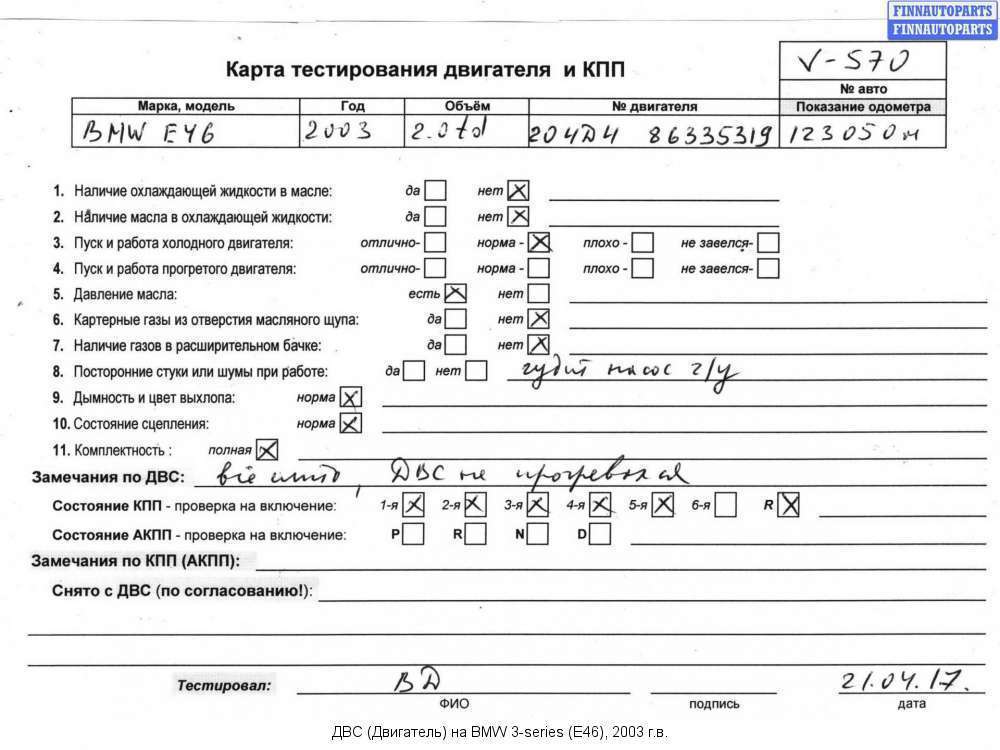 FINNAUTOPARTS
FINNAUTOPARTS
Карта тестирования двигателя и КПП
V-570
№ авто
Марка, модель Год Объём № двигателя Показание одометра
BMW E46 2003 2.0td 204D4 86335319 123050м
1. Наличие охлаждающей жидкости в масле: да нет
2. Наличие масла в охлаждающей жидкости: да нет
3. Пуск и работа холодного двигателя: отлично- норма - плохо - не завелся-
4. Пуск и работа прогретого двигателя: отлично- норма - плохо - не завелся-
5. Давление масла: есть нет
6. Картерные газы из отверстия масляного щупа: да нет
7. Наличие газов в расширительном бачке: да нет
8. Посторонние стуки или шумы при работе: да нет гудит насос г/у
9. Дымность и цвет выхлопа: норма
10. Состояние сцепления: норма
11. Комплектность : полная
Замечания по ДВС: ДВС не прогревался
Состояние КПП - проверка на включение: 1-я 2-я 3-я 4-я 5-я 6-я R
Состояние АКПП - проверка на включение: P R N D
Замечания по КПП (АКПП):
Снято с ДВС (по согласованию!):
Тестировал: ВД 21.04.17.
ФИО подпись дата
ДВС (Двигатель) на BMW 3-series (E46), 2003 г.в.